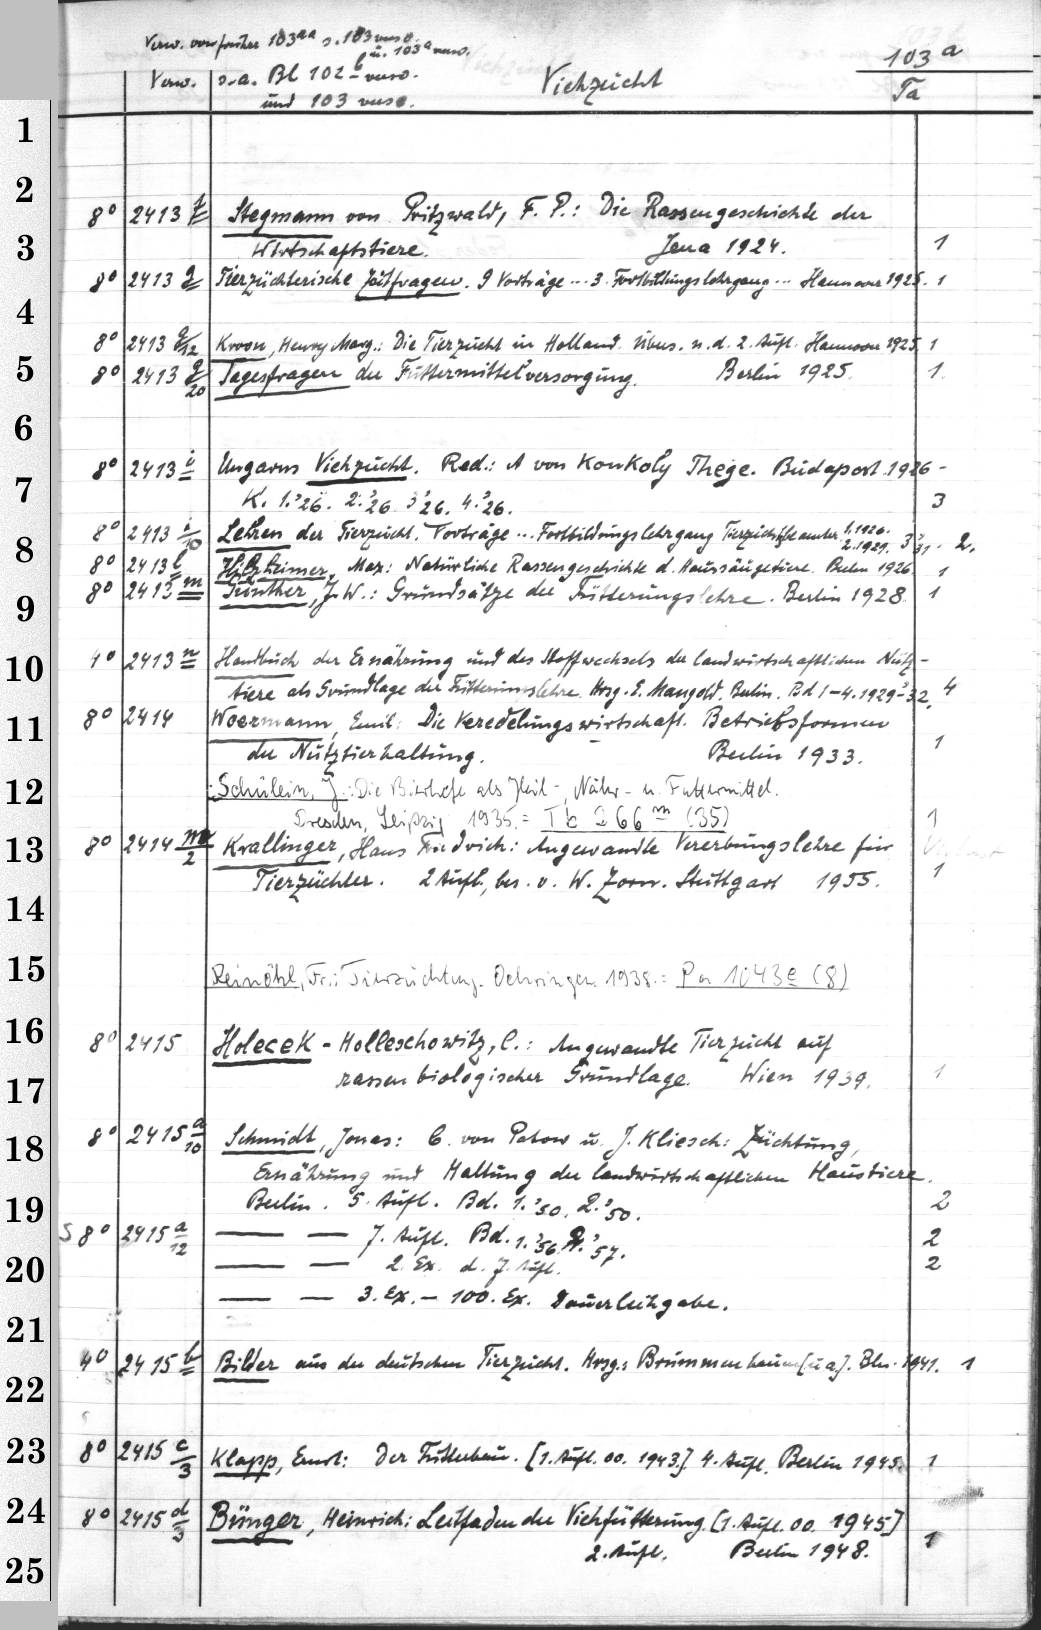 Verw. von früher 103aa s. 103 verso.
u. 103a verso.
Verw. s.a. Bl 102b verso.
und 103 verso.
Viehzucht
103a
Ta
1
2
8° 2413 f Stegmann von Pritzwald, F. P.: Die Rassengeschichte der
3
Wirtschaftstiere. Jena 1924. 1
8° 2413 g Tierzüchterische Zeitfragen. 9 Vorträge ... 3. Fortbildungslehrgang ... Hannover 1925. 1
4
8° 2413 g/12 Kroon, Henry Marg.: Die Tierzucht in Holland. Übers. n. d. 2. Aufl. Hannover 1925. 1
5
8° 2413 g/20 Tagesfragen der Futtermittelversorgung. Berlin 1925. 1.
6
8° 2413 i Ungarns Viehzucht. Red.: A von Konkoly Thege. Budapest 1926 -
7
K. 1.'26. 2.'26. 3'26. 4.'26. 3
8° 2413 i/10 Lehren der Tierzucht. Vorträge ... Fortbildungslehrgang Tierzuchtbeamter 1.1926. 2.1929. 3'31. 2.
8
8° 2413 l Hilzheimer, Max: Natürliche Rassengeschichte d. Haussäugetiere. Berlin 1926. 1
8° 2413 m Günther, J. W.: Grundsätze der Fütterungslehre. Berlin 1928. 1
9
10
4° 2413 n Handbuch der Ernährung und des Stoffwechsels der landwirtschaftlichen Nutz-
tiere als Grundlage der Fütterungslehre. Hrsg. E. Mangold. Berlin. Bd 1-4. 1929-32. 4
8° 2414 Woermann, Emil: Die Veredelungswirtschaft. Betriebsformen
11
der Nutztierhaltung. Berlin 1933. 1
12
Schülein, J.: Die Bierhefe als Heil-, Nähr- u. Futtermittel.
Dresden, Leipzig 1935. = Tb 266 m (35) 1
13
8° 2414 m/2 Krallinger, Hans Friedrich: Angewandte Vererbungslehre für
Tierzüchter. 2 Aufl., bes. v. W. Zorn. Stuttgart 1955. 1
14
15
Reinöhl, Fr.: Tierzüchtung. Oehringen 1938. = Pa 1043e (8)
16
8° 2415 Holecek-Holleschowitz, C.: Angewandte Tierzucht auf
17
rassenbiologischer Grundlage. Wien 1939. 1
18
8° 2415 a/10 Schmidt, Jonas: C. von Patow u. J. Kliesch: Züchtung,
Ernährung und Haltung der landwirtschaftlichen Haustiere.
19
Berlin. 5. Aufl. Bd. 1.'50. 2.'50. 2
S 8° 2415 a/12 — — 7. Aufl. Bd. 1.'56. 2.'57. 2
20
— — 2. Ex. d. 7. Aufl. 2
— — 3. Ex. - 100. Ex. Dauerleihgabe.
21
4° 2415 b Bilder aus der deutschen Tierzucht. Hrsg.: Brummenbaum [u a.]. Bln. 1941. 1
22
23
8° 2415 c/3 Klapp, Ernst: Der Futterbau. [1. Aufl. oo. 1943.] 4. Aufl. Berlin 1945. 1
24
8° 2415 d/3 Bünger, Heinrich: Leitfaden der Viehfütterung. [1. Aufl. oo. 1945]
25
2. Aufl. Berlin 1948. 1